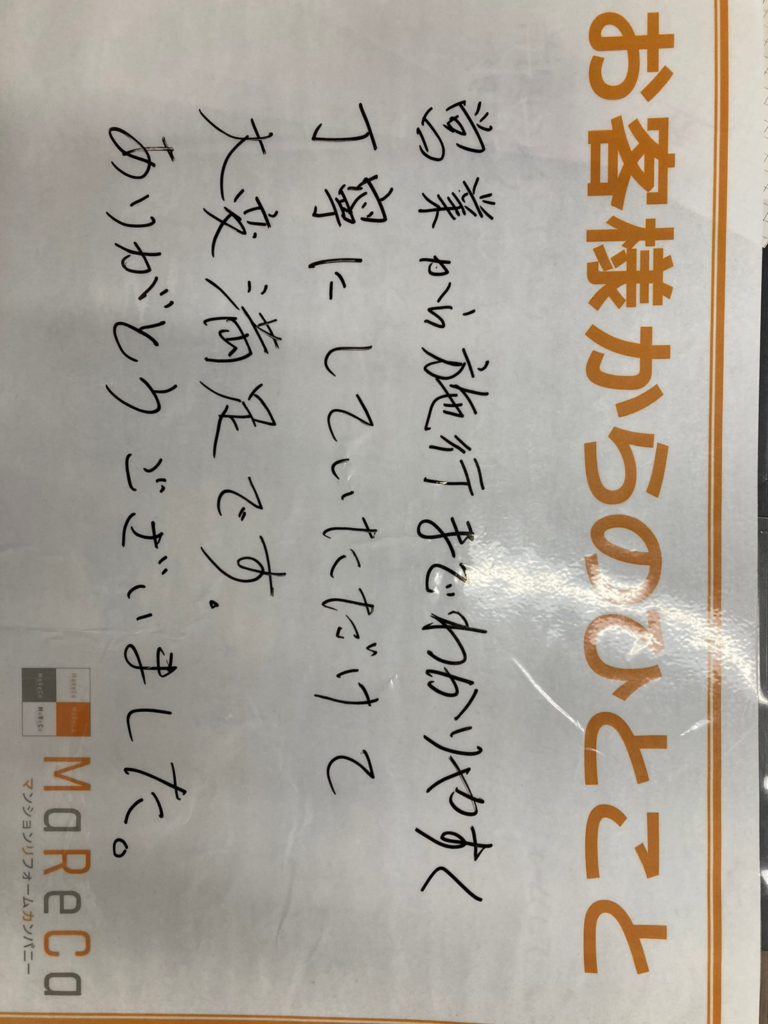 お客様からのひとこと
営業から施行までわかりやすく
丁寧にしていただけて
大変満足です。
ありがとうございました。
MaReCa
マンションリフォームカンパニー